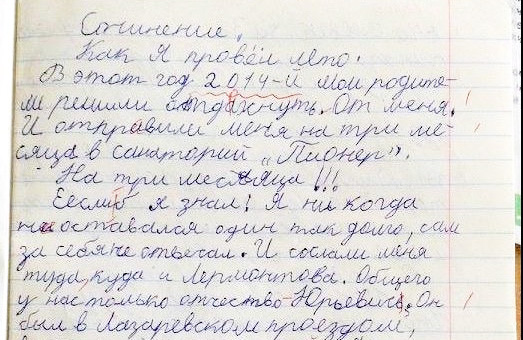 Сочинение.
Как я провёл лето.
В этот год 2014-й мои родите-
ли решили отдахнуть. От меня.
И отправили меня на три ме-
сяца в санаторий „Пионер".
На три месяца!!!
Еслиб я знал! Я ни когда
не оставался один так долго, сам
за себя не отвечал. И сослали меня
туда, куда и Лермонтова. Общего
у нас только отчество - Юрьевич. Он
был в Лазаревском проездом,